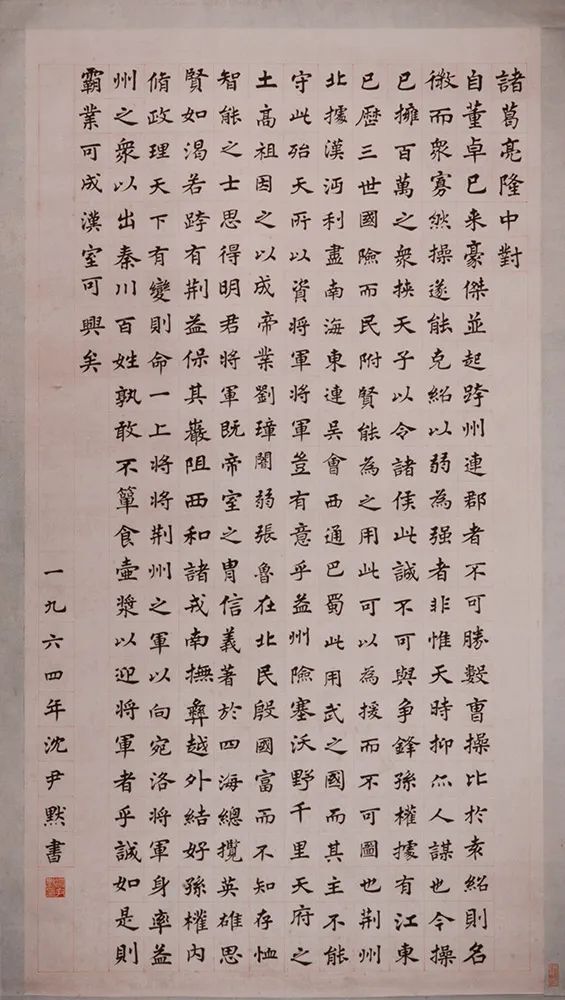 諸葛亮隆中對
自董卓已来豪傑並起跨州連郡者不可勝數曹操比於袁紹則名
微而衆寡然操遂能克紹以弱為强者非惟天時抑亦人謀也今操
已擁百萬之衆挾天子以令諸侯此誠不可與争鋒孫權據有江東
已歷三世國險而民附賢能為之用此可以為援而不可圖也荆州
北據漢沔利盡南海東連吴會西通巴蜀此用武之國而其主不能
守此殆天所以資將軍將軍豈有意乎益州險塞沃野千里天府之
土高祖因之以成帝業劉璋闇弱張魯在北民殷國富而不知存恤
智能之士思得明君將軍既帝室之胄信義著於四海總攬英雄思
賢如渴若跨有荆益保其巖阻西和諸戎南撫彝越外結好孫權内
脩政理天下有變則命一上將將荆州之軍以向宛洛將軍身率益
州之衆以出秦川百姓孰敢不簞食壺漿以迎將軍者乎誠如是則
霸業可成漢室可興矣
一九六四年沈尹默書